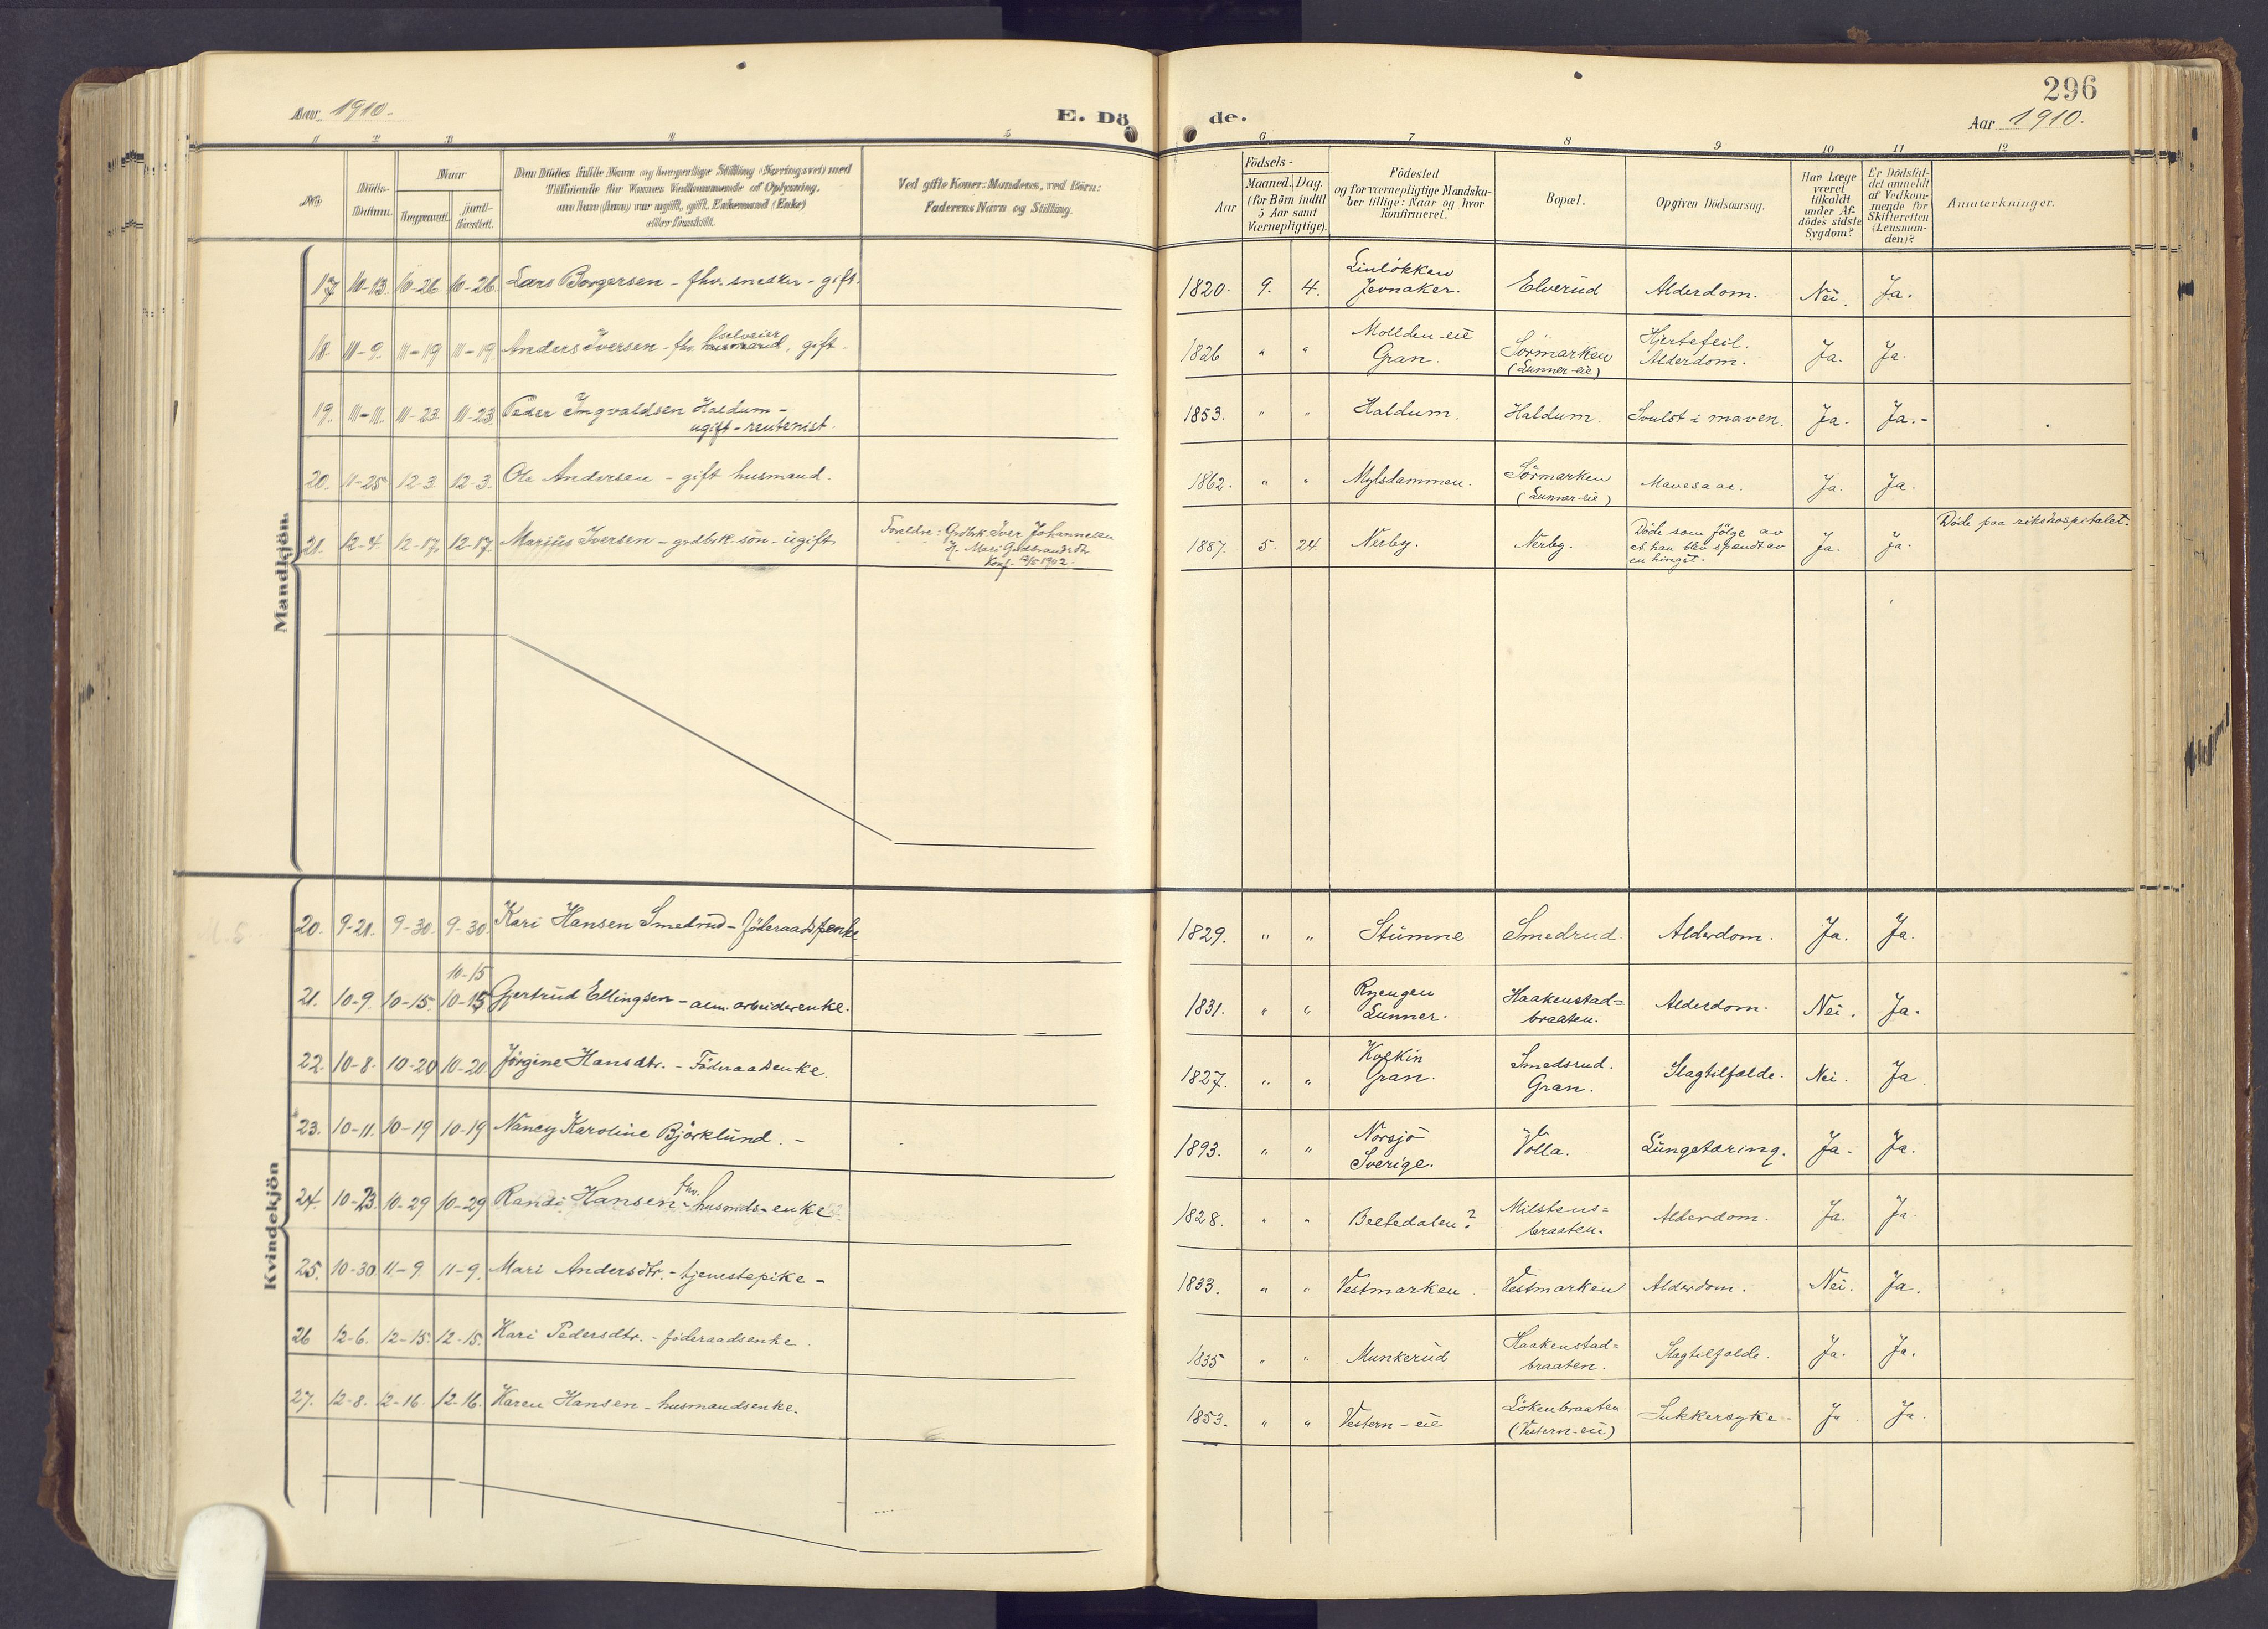 296
Aar 1910.
E. Dö
de.
Aar 1910.
1 2 3 4 5 6 7 8 9 10 11 12
No.
Döds-
Datum.
Naar
Begravet.
jord-
fæstet.
Den Dödes fulde Navn og borgerlige Stilling (Næringsvei) med
Tilföiende for Voxnes Vedkommende af Oplysning,
om han (hun) var ugift, gift, Enkemand (Enke)
eller fraskilt.
Ved gifte Koner: Mandens, ved Börn:
Faderens Navn og Stilling.
Födsels-
Aar
Maaned. Dag.
(for Börn indtil
5 Aar samt
Værnepligtige).
Födested
og for værnepligtige Mandska-
ber tillige: Naar og hvor
konfirmeret.
Bopæl.
Opgiven Dödsaarsag.
Har Læge
været
tilkaldt
under Af-
dödes sidste
Sygdom?
Er Dödsfal-
det anmeldt
af Vedkom-
mende for
Skifteretten
(Lensman-
den)?
Anmærkninger.
Mandkjön.
17 10-13. 10-26 10-26. Lars Borgersen - fhv. snedker - gift. 1820. 9. 4. Linløkken Jevnaker. Elverud Alderdom. Nei. Ja.
18. 11-9. 11-19 11-19. Anders Iversen - fhv. husmand, selveier gift. 1826 " " Mollden-eie Gran. Sörmarken (Lunner-eie) Hjertefeil. Alderdom. Ja. Ja.
19. 11-11. 11-23. 11-23. Peder Ingvaldsen Haldum -
ugift - rentenist. 1853. " " Haldum. Haldum. Svulst i maven. Ja. Ja.-
20. 11-25 12-3. 12-3. Ole Andersen - gift husmand. 1862. " " Mylsdammen. Sörmarken (Lunner-eie) Mavesaar. Ja. Ja.
21. 12-4. 12-17. 12-17. Marius Iversen - grdbrk. sön - ugift. Foreldre: Grdbrk Iver Johannesen
H. Mari Gudbrandsdtr.
Konf. 1902. 1887. 5. 24. Nerby. Nerby. Döde som fölge av
at han blev spændt av
en hingst. Ja. Ja. Döde paa rikshospitalet.
Kvindekjön
20. 9-21. 9-30. 9-30. Kari Hansen Smedrud - föderaadsenke 1829. " " Stumne Smedrud. Alderdom. Ja. Ja.
10-15
21. 10-9. 10-15. 10-15 Gjertrud Ellingsen - alm. arbeiderenke. 1831. " " Ryengen Lunner. Haakenstad=
braaten. Alderdom. Nei. Ja.
22. 10-8. 10-20 10-20 Jørgine Hansdtr. - Föderaadsenke. 1827. " " Kolkin Gran. Smedsrud. Gran. Slagtilfælde. Nei. Ja
23. 10-11. 10-19 10-19 Nancy Karoline Björklund. - 1893. " " Norsjö Sverige. Volla. Lungetæring. Ja. Ja.
24. 10-23. 10-29 10-29 Randi Hansen - fhv. husmds-enke 1828. " " Beltedalen? Milstens=
braaten. Alderdom. Ja. Ja.
25. 10-30 11-9. 11-9. Mari Andersdtr. - tjenestepike - 1833. " " Vestmarken. Vestmarken Alderdom. Nei. Ja.
26 12-6. 12-15. 12-15. Kari Pedersdtr. - föderaadsenke. 1835 " " Munkerud Haakenstad=
braaten. Slagtilfælde. Ja. Ja.
27. 12-8. 12-16. 12-16. Karen Hansen - husmandsenke. 1853. " " Vestern-eie Lökenbraaten
(Vestern-eie) Sukkersyke - Ja. Ja.